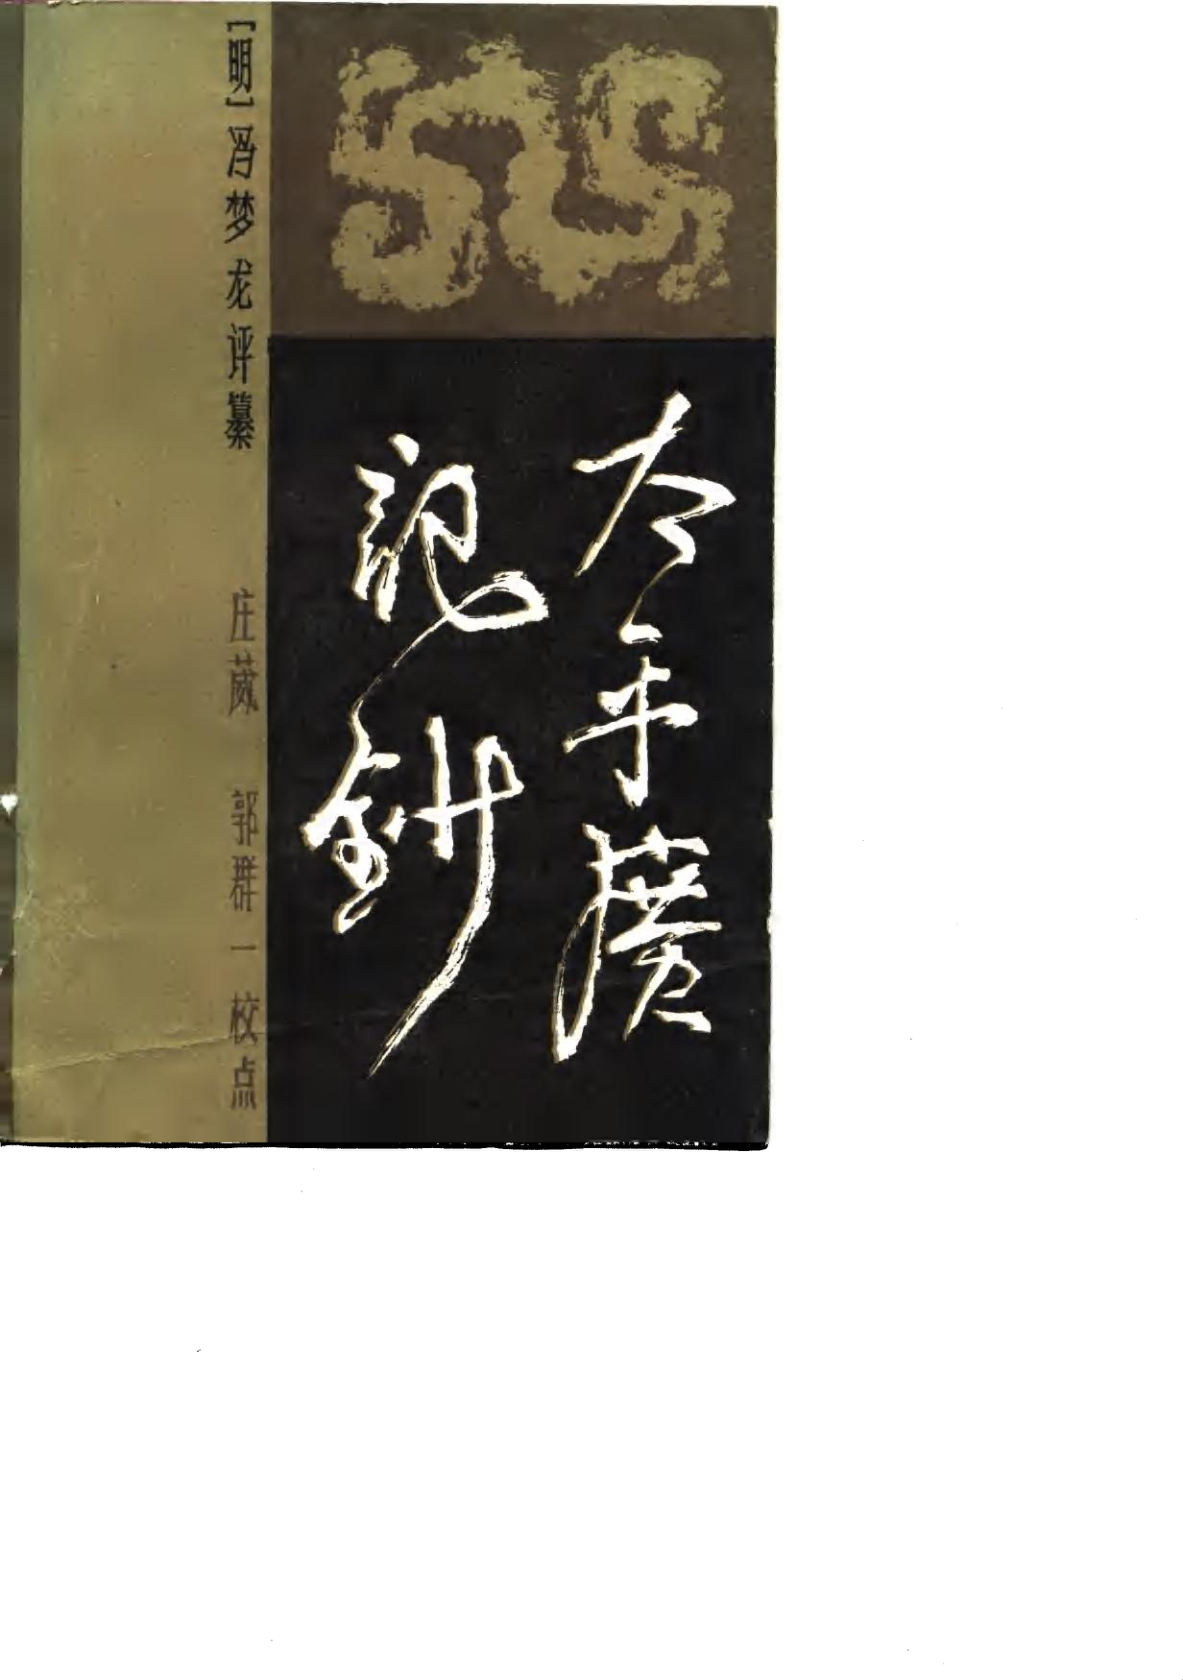 太平廣
記鈔
[明]冯梦龙评纂
庄葳 郭群一 校点